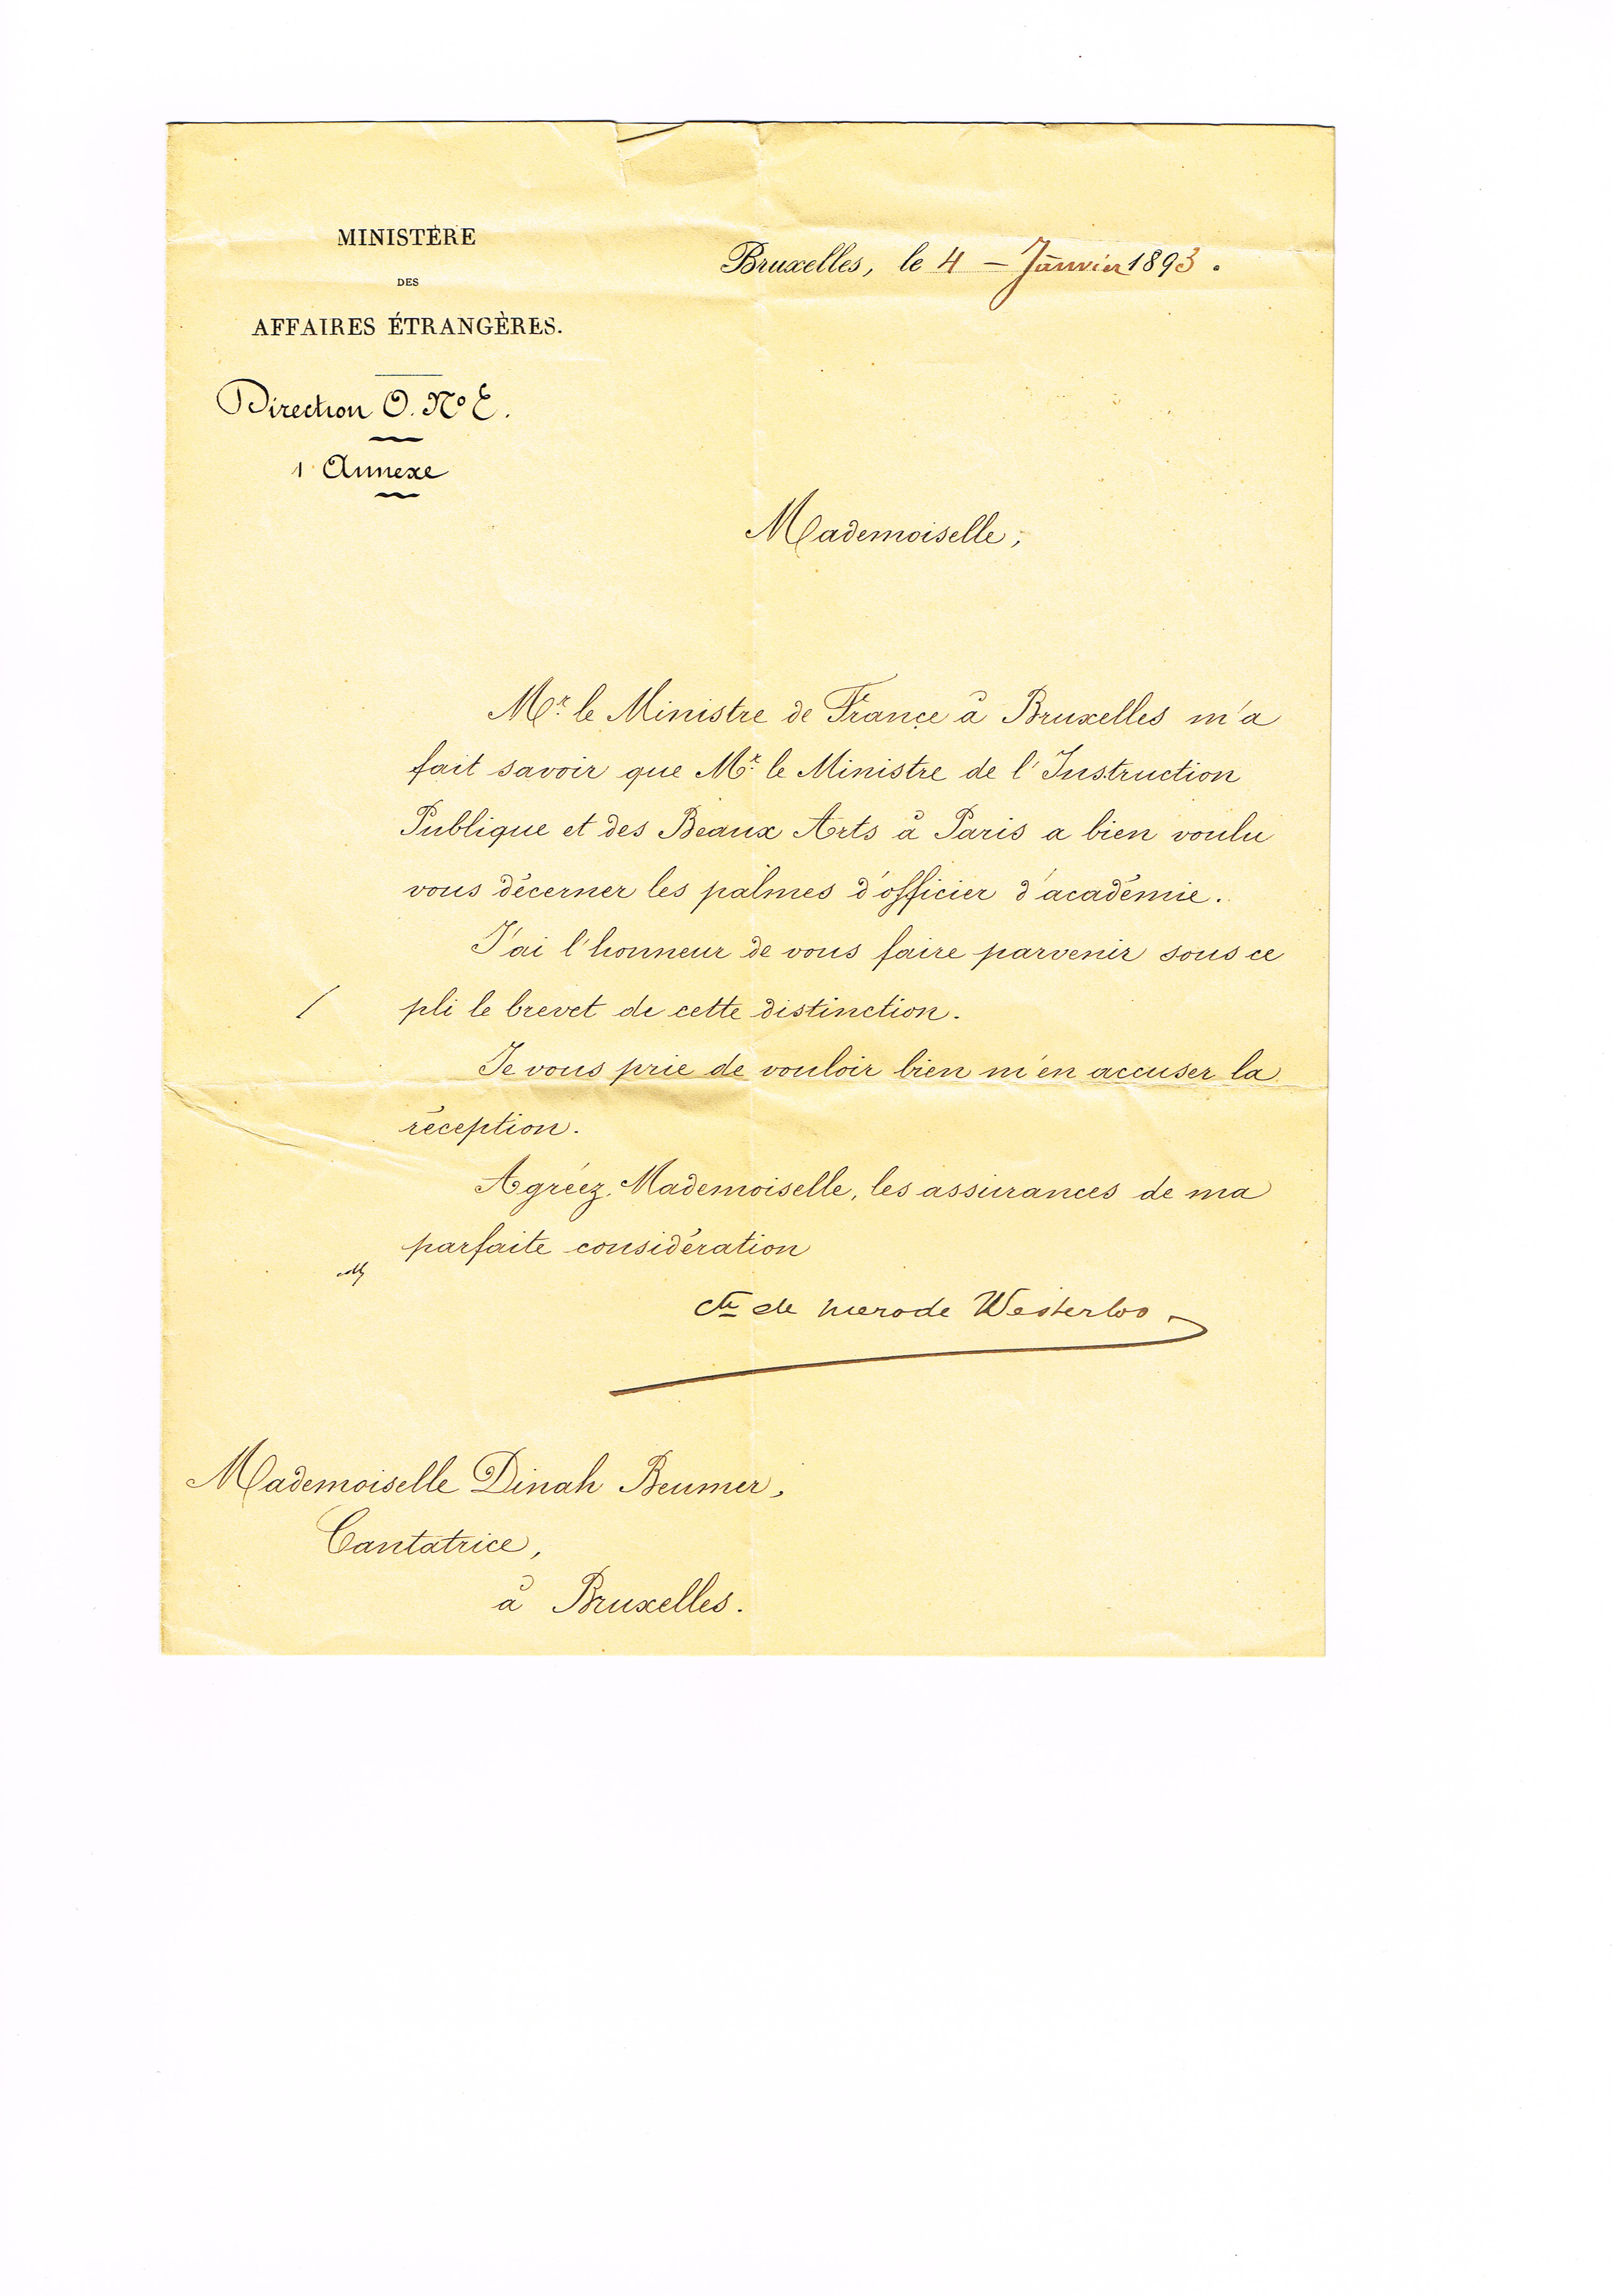 MINISTÈRE
DES
AFFAIRES ÉTRANGÈRES.
Bruxelles, le 4 – Janvier 1893.
Direction O. Nº E.
1 Annexe
Mademoiselle,
Mr. le Ministre de France à Bruxelles m'a
fait savoir que Mr. le Ministre de l'Instruction
Publique et des Beaux Arts à Paris a bien voulu
vous décerner les palmes d'officier d'académie.
J'ai l'honneur de vous faire parvenir sous ce
/ pli le brevet de cette distinction.
Je vous prie de vouloir bien m'en accuser la
réception.
Agréez, Mademoiselle, les assurances de ma
parfaite considération
Cte de Merode Westerloo
Mademoiselle Dinah Beumer,
Cantatrice,
à Bruxelles.